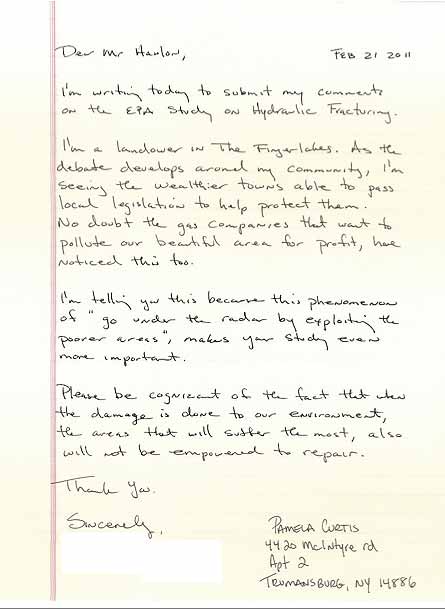 Dear Mr Hanlon,
FEB 21 2011
I'm writing today to submit my comments
on the EPA Study on Hydraulic Fracturing.
I'm a landower in The Fingerlakes. As the
debate develops around my community, I'm
seeing the wealthier towns able to pass
local legislation to help protect them.
No doubt the gas companies that want to
pollute our beautiful area for profit, have
noticed this too.
I'm telling you this because this phenomenon
of "go under the radar by exploiting the
poorer areas", makes your study even
more important.
Please be cognizant of the fact that when
the damage is done to our environment,
the areas that will suffer the most, also
will not be empowered to repair.
Thank you.
Sincerely,
PAMELA CURTIS
4420 McIntyre rd
Apt 2
TRUMANSBURG, NY 14886